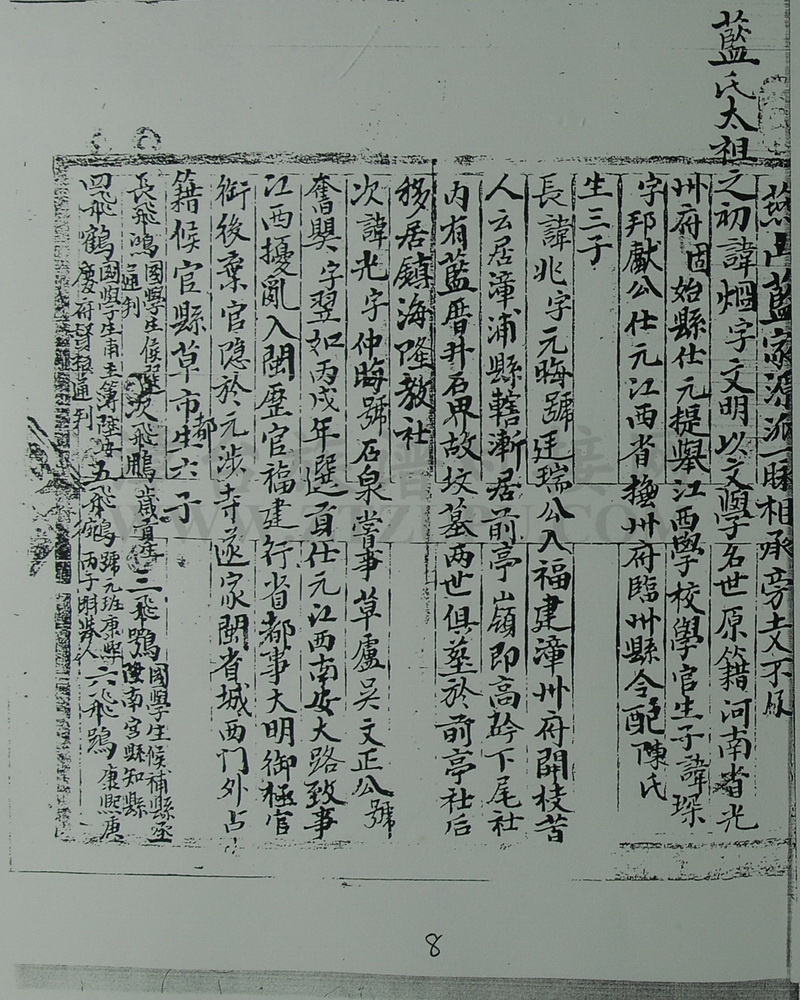 燕山藍家源派一脉相承旁支不
藍氏太祖之初諱烟字文明以文學名世原籍河南省光
州府固始縣仕元提舉江西學校學官生子諱琛
字邦獻公仕元江西省撫州府臨川縣令配陳氏
生三子
長諱兆字元晦號廷瑞公入福建漳州府開枝昔
人云居漳浦縣轄漸居前亭嶺即高下尾社
内有藍厝井石界故坟墓两世俱塟於前亭社后
移居鎮海隆教社
次諱光字仲晦號石泉嘗事草廬吳文正公號
奮興字翌如丙戌年選貢仕元江西南安大路致事
江西擾亂入閩歷官福建行省都事大明御極官
銜後棄官隐於元涉寺遂家閩省城西門外占
籍候官縣草市都生六子
長飛鴻國學生候選通判次飛鵬歲貢生三飛鶚國學生候補縣丞南宮縣知縣
四飛鶴國學生南主簿陞安慶府督糧通判五飛鵷號元班康熙丙子科舉人六飛鵠康熙庚
8